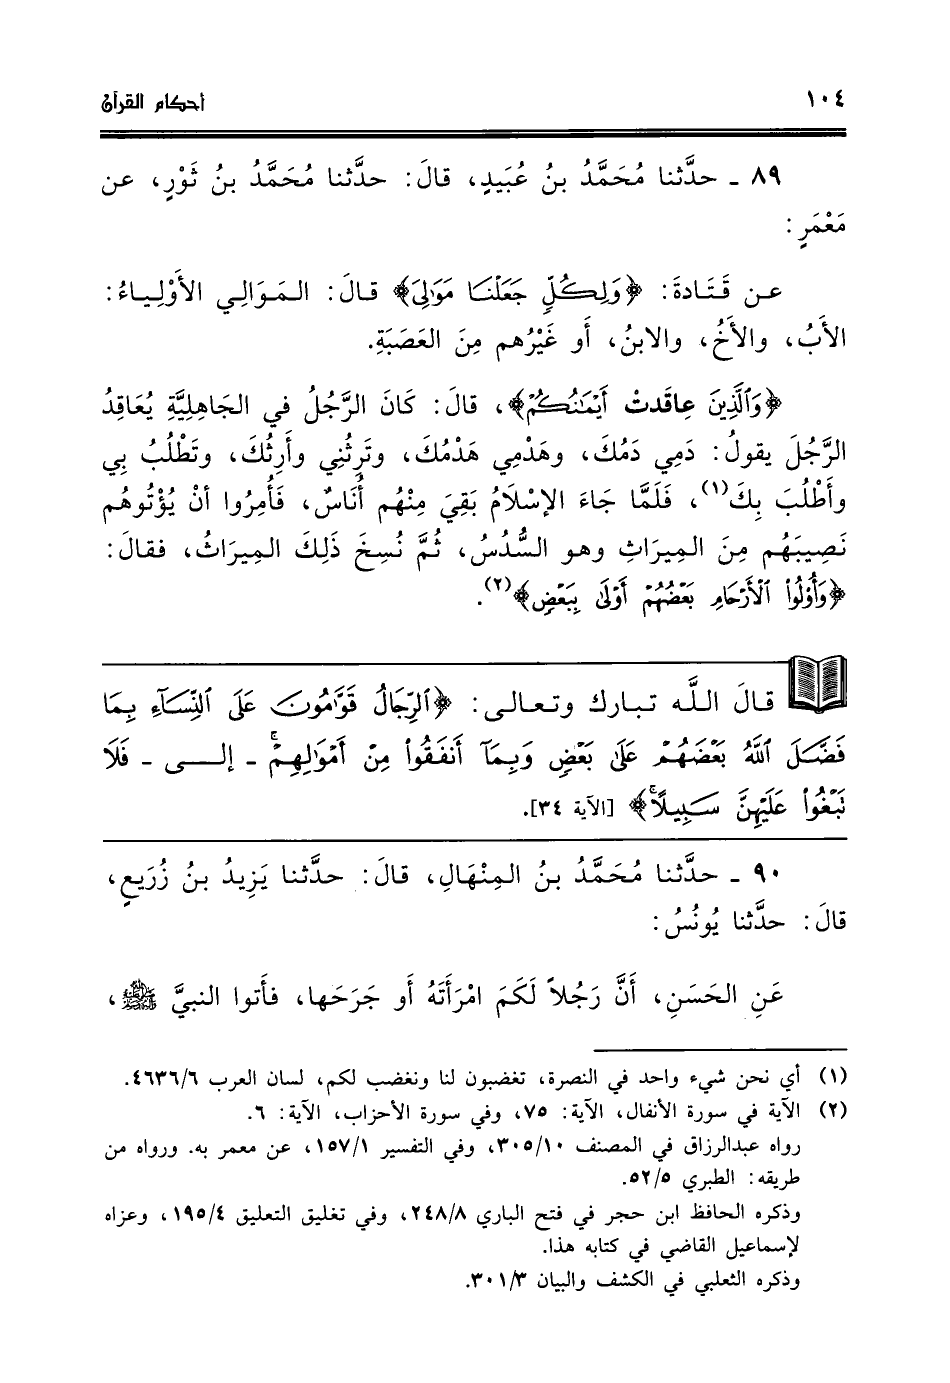 ١٠٤ أحكام القرآن
٨٩ ـ حدَّثنا مُحَمَّدُ بنُ عُبَيدٍ، قالَ: حدَّثنا مُحَمَّدُ بنُ ثَوْرٍ، عن
مَعْمَرٍ:
عن قَتَادةَ: ﴿وَلِكُلٍّ جَعَلْنَا مَوَٰلِيَ﴾ قالَ: المَوَالِي الأَوْلِياءُ:
الأَبُ، والأَخُ، والابنُ، أو غَيْرُهم مِنَ العَصَبَةِ.
﴿وَٱلَّذِينَ عاقَدتْ أَيْمَٰنُكُمْ﴾، قالَ: كَانَ الرَّجُلُ في الجَاهِليَّةِ يُعَاقِدُ
الرَّجُلَ يقولُ: دَمِي دَمُكَ، وهَدْمِي هَدْمُكَ، وتَرِثُنِي وأَرِثُكَ، وتَطْلُبُ بِي
وأَطْلُبَ بِكَ(١)، فَلَمَّا جَاءَ الإسْلَامُ بَقِيَ مِنْهُم أُنَاسٌ، فَأُمِرُوا أنْ يُؤْتُوهُم
نَصِيبَهُم مِنَ المِيرَاثِ وهو السُّدُسُ، ثُمَّ نُسِخَ ذَلِكَ المِيرَاثُ، فقالَ:
﴿وَأُوْلُواْ ٱلْأَرْحَامِ بَعْضُهُمْ أَوْلَىٰ بِبَعْضٍ﴾(٢).
قالَ اللَّه تبارك وتعالى: ﴿ٱلرِّجَالُ قَوَّٰمُونَ عَلَى ٱلنِّسَآءِ بِمَا
فَضَّلَ ٱللَّهُ بَعْضَهُمْ عَلَىٰ بَعْضٍ وَبِمَآ أَنفَقُواْ مِنْ أَمْوَٰلِهِمْۚ ـ إلى ـ فَلَا
تَبْغُواْ عَلَيْهِنَّ سَبِيلًاۗ﴾ [الآية ٣٤].
٩٠ ـ حدَّثنا مُحَمَّدُ بنُ المِنْهَالِ، قالَ: حدَّثنا يَزِيدُ بنُ زُرَيعٍ،
قالَ: حدَّثنا يُونُسُ:
عَنِ الحَسَنِ، أنَّ رَجُلاً لَكَمَ امْرَأَتَهُ أو جَرَحَها، فأَتوا النبيَّ ﷺ،
(١) أي نحن شيء واحد في النصرة، تغضبون لنا ونغضب لكم، لسان العرب ٤٦٣٦/٦.
(٢) الآية في سورة الأنفال، الآية: ٧٥، وفي سورة الأحزاب، الآية: ٦.
رواه عبدالرزاق في المصنف ٣٠٥/١٠، وفي التفسير ١٥٧/١، عن معمر به. ورواه من
طريقه: الطبري ٥٢/٥.
وذكره الحافظ ابن حجر في فتح الباري ٢٤٨/٨، وفي تغليق التعليق ١٩٥/٤، وعزاه
لإسماعيل القاضي في كتابه هذا.
وذكره الثعلبي في الكشف والبيان ٣٠١/٣.